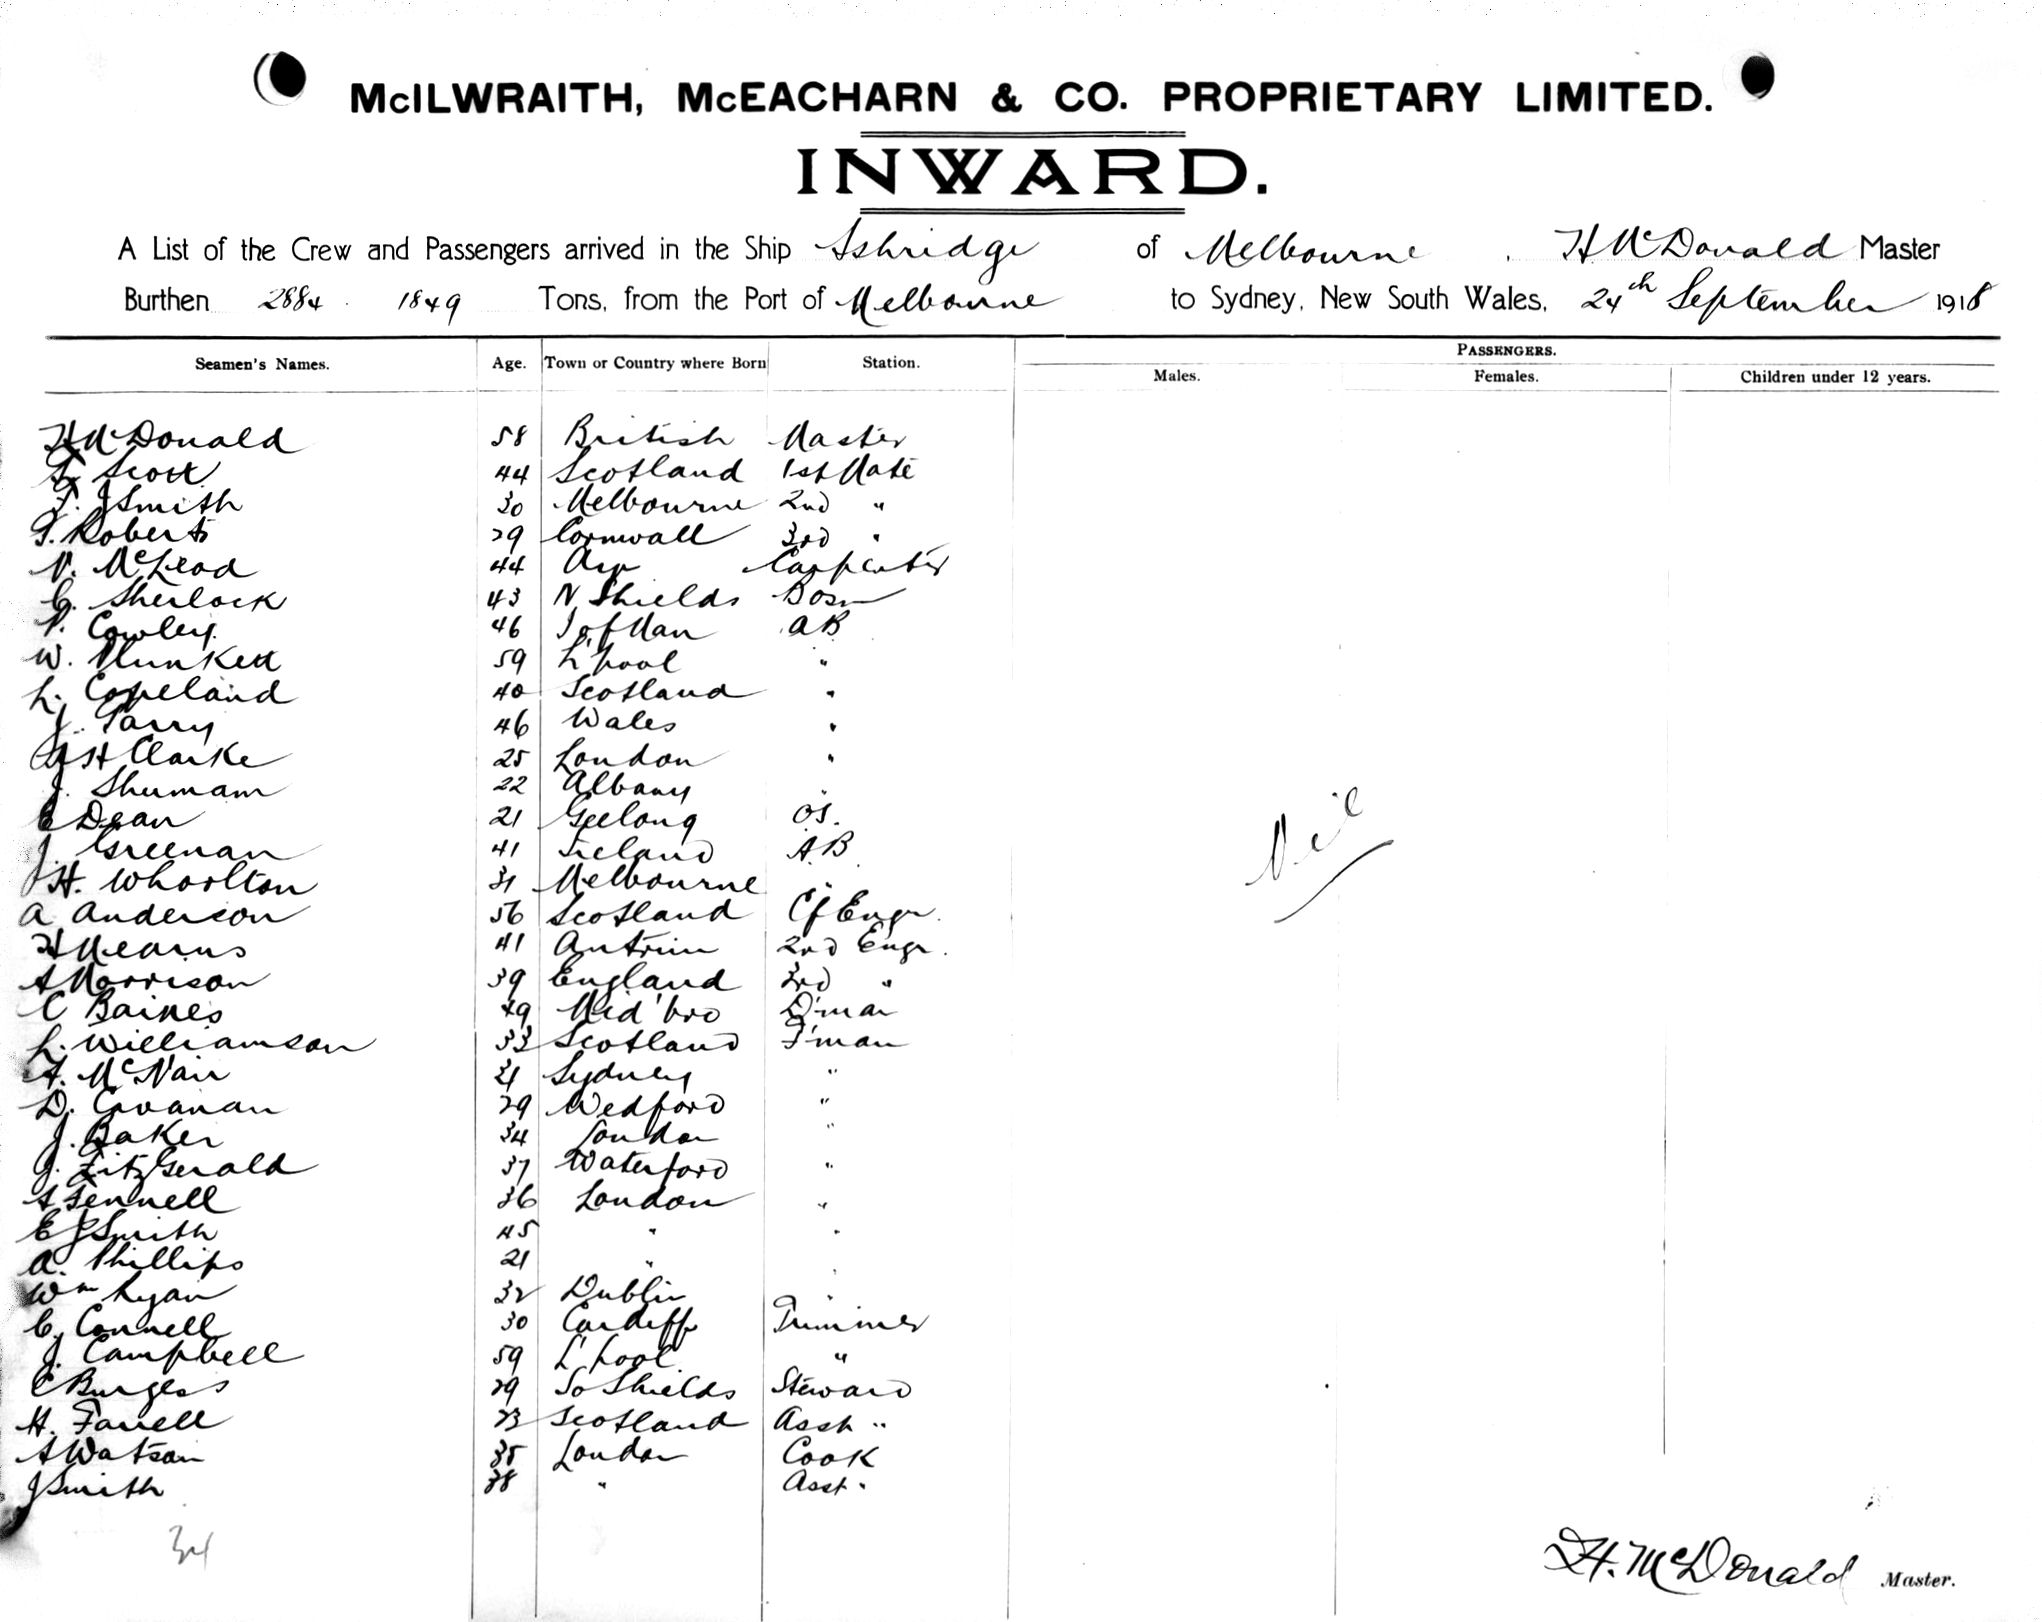 McILWRAITH, McEACHARN & CO. PROPRIETARY LIMITED.
INWARD.
A List of the Crew and Passengers arrived in the Ship Ashridge of Melbourne . H McDonald Master
Burthen 2884 . 1849 Tons, from the Port of Melbourne to Sydney, New South Wales, 24th September 1918
Seamen's Names. Age. Town or Country where Born Station. PASSENGERS.
Males. Females. Children under 12 years.
H McDonald 58 British Master
Scott 44 Scotland 1st Mate
J Smith 30 Melbourne 2nd "
Roberts 29 Cornwall 3rd "
N. McLeod 44 Carpenter
C. Sherlock 43 N Shields Bosn
Cowley. 46 I of Man AB
W. Plunkett 59 L'pool "
L. Copeland 40 Scotland "
J. Parry 46 Wales "
A H Clarke 25 London "
J. Shumam 22 Albany "
E Dean 21 Geelong OS.
J. Greenan 41 Ireland A.B
H. Whorlton 31 Melbourne "
A Anderson 56 Scotland Cf Engr.
H Mearns 41 Antrim 2nd Engr.
A Morrison 39 England 3rd "
C Baines 49 Mid'bro D'man
L. Williamson 33 Scotland F'man
A. McNair 21 Sydney "
D. 29 Wedford "
J. Baker 34 London "
J. FitzGerald 37 Waterford "
A Fennell 36 London "
E J Smith 45 " "
A. Phillips 21 " "
Wm Ryan 32 Dublin "
C. Connell 30 Cardiff Trimmer
J. Campbell 59 L'pool "
C Burgess 29 So Shields Steward
H. Farrell 23 Scotland Asst "
A Watson 35 London Cook
J Smith 38 " Asst "
Nil
34
H. McDonald Master.